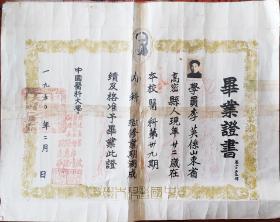 畢業證書
學員李英係山東省
高密縣人現年廿二歲在
本校醫科第廿九期
內科 班修業期滿成
績及格准予畢業此證
中國醫科大學
一九五〇年二月 日